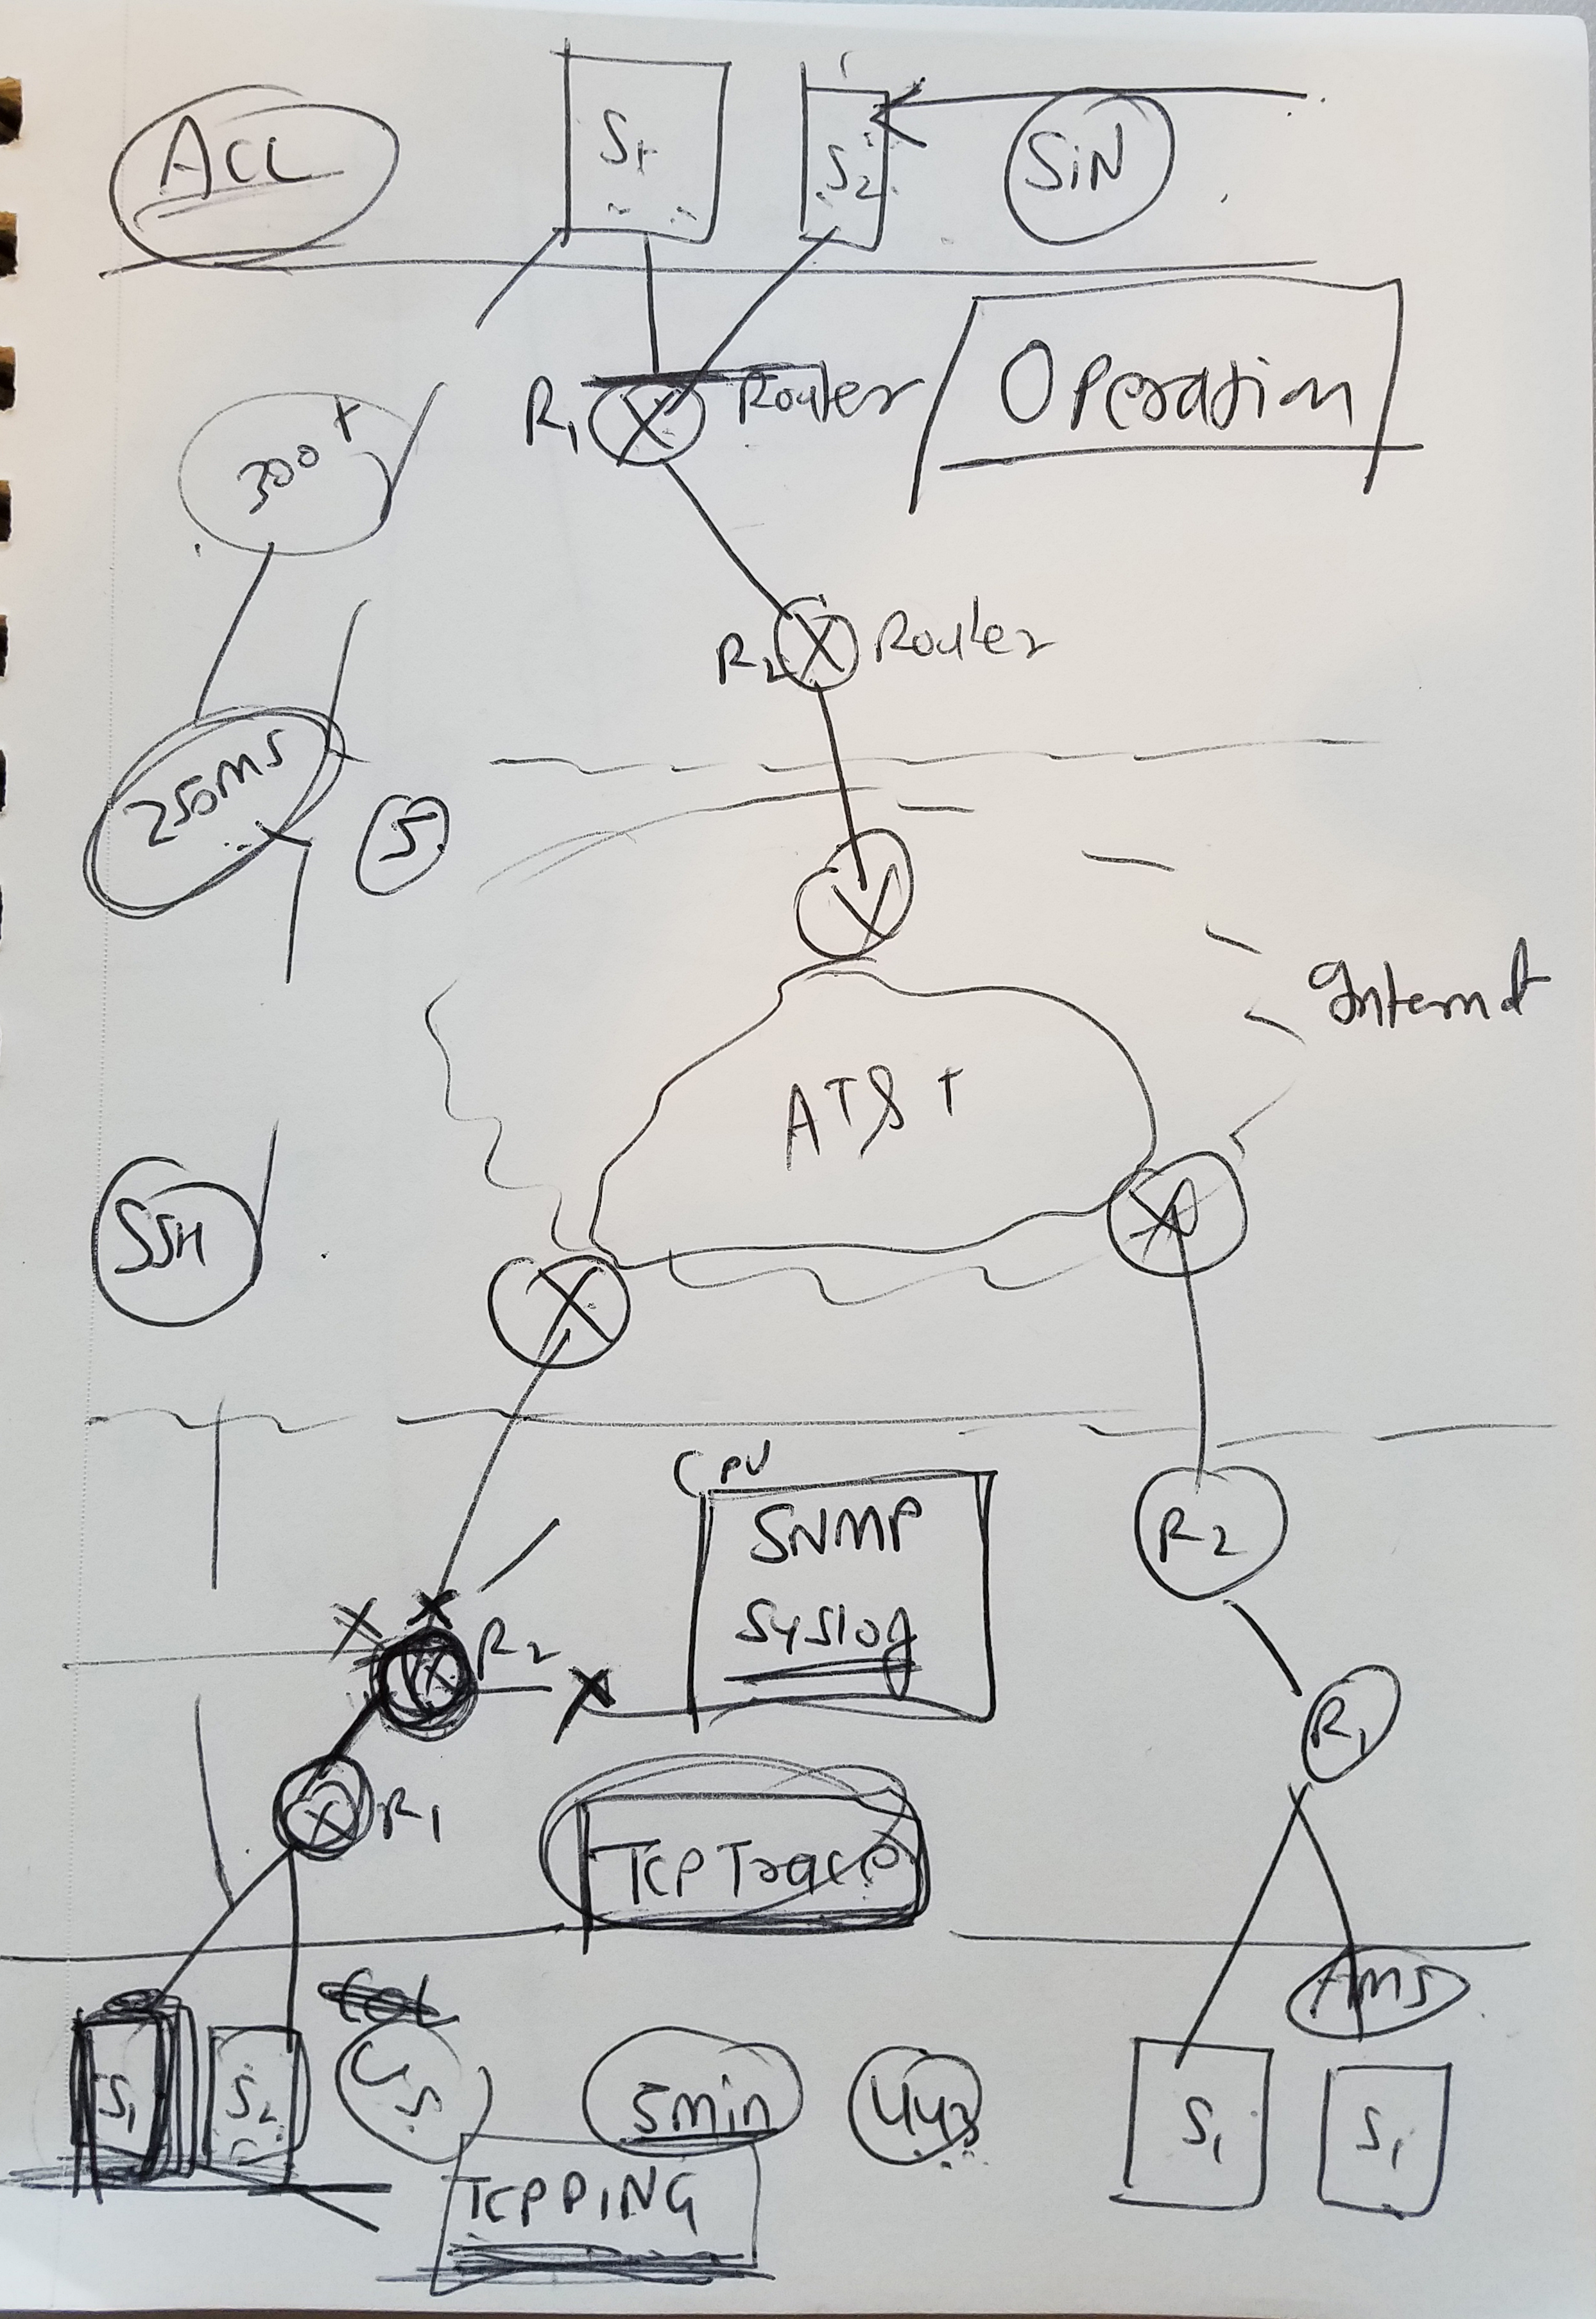 ACL
S1
S2
SiN
300+
R1
Router
Operation
R2
Router
250ms
5
Internet
AT&T
SSH
CPU
SNMP
Syslog
R2
R2
R1
R1
TCP Trace
AMS
S1
S2
US
5min
443
S1
S1
TCPPING